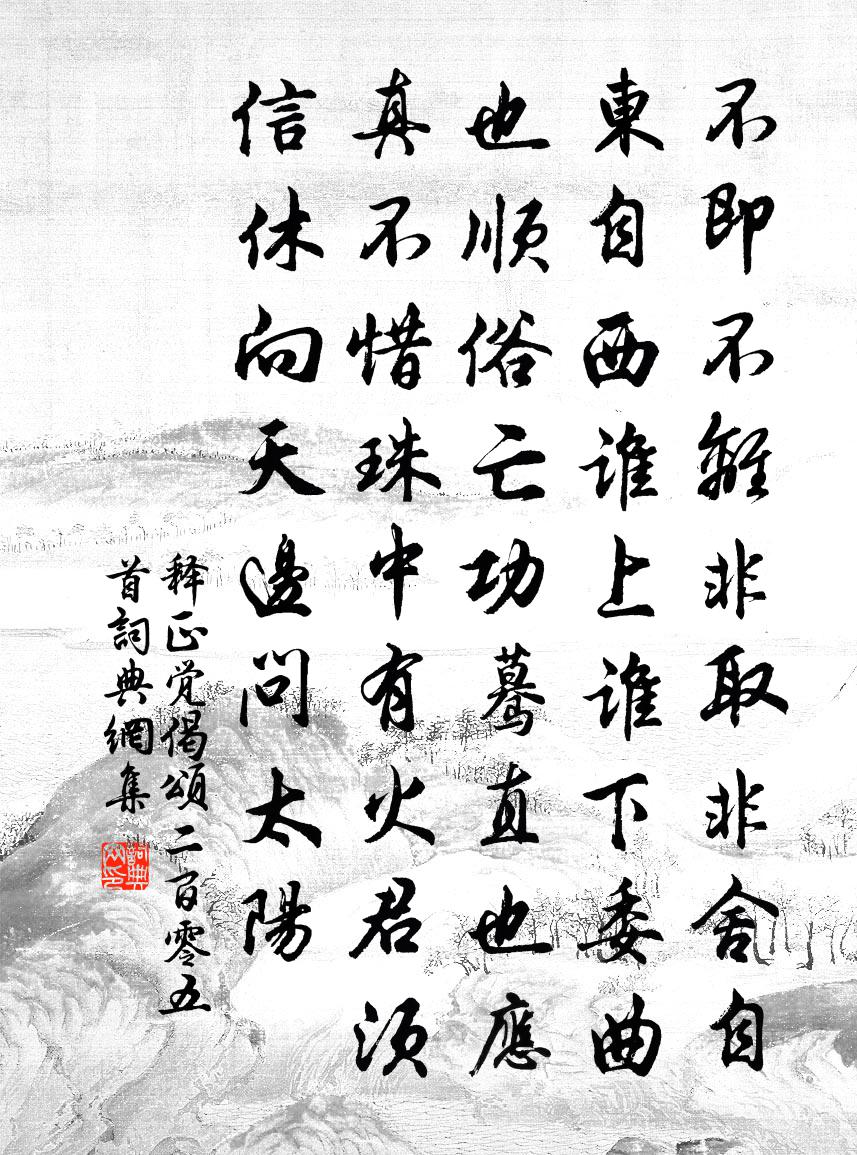 不即不離非取非舍自
東自西誰上誰下委曲
也順俗亡功驀直也應
真不惜珠中有火君須
信休向天邊問太陽
释正觉偈頌二百零五
首詞典網集